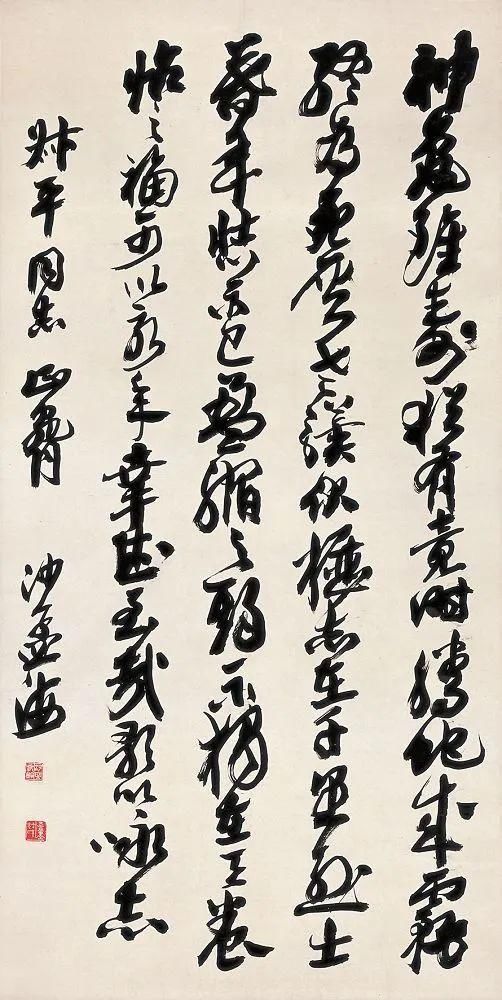 神龜雖壽猶有竟時騰蛇成霧
終為死灰老驥伏櫪志在千里烈士
暮年壯心不已盈縮之期不獨在天養
怡之福可以永年幸甚至哉歌以咏志
平同志正 沙孟海